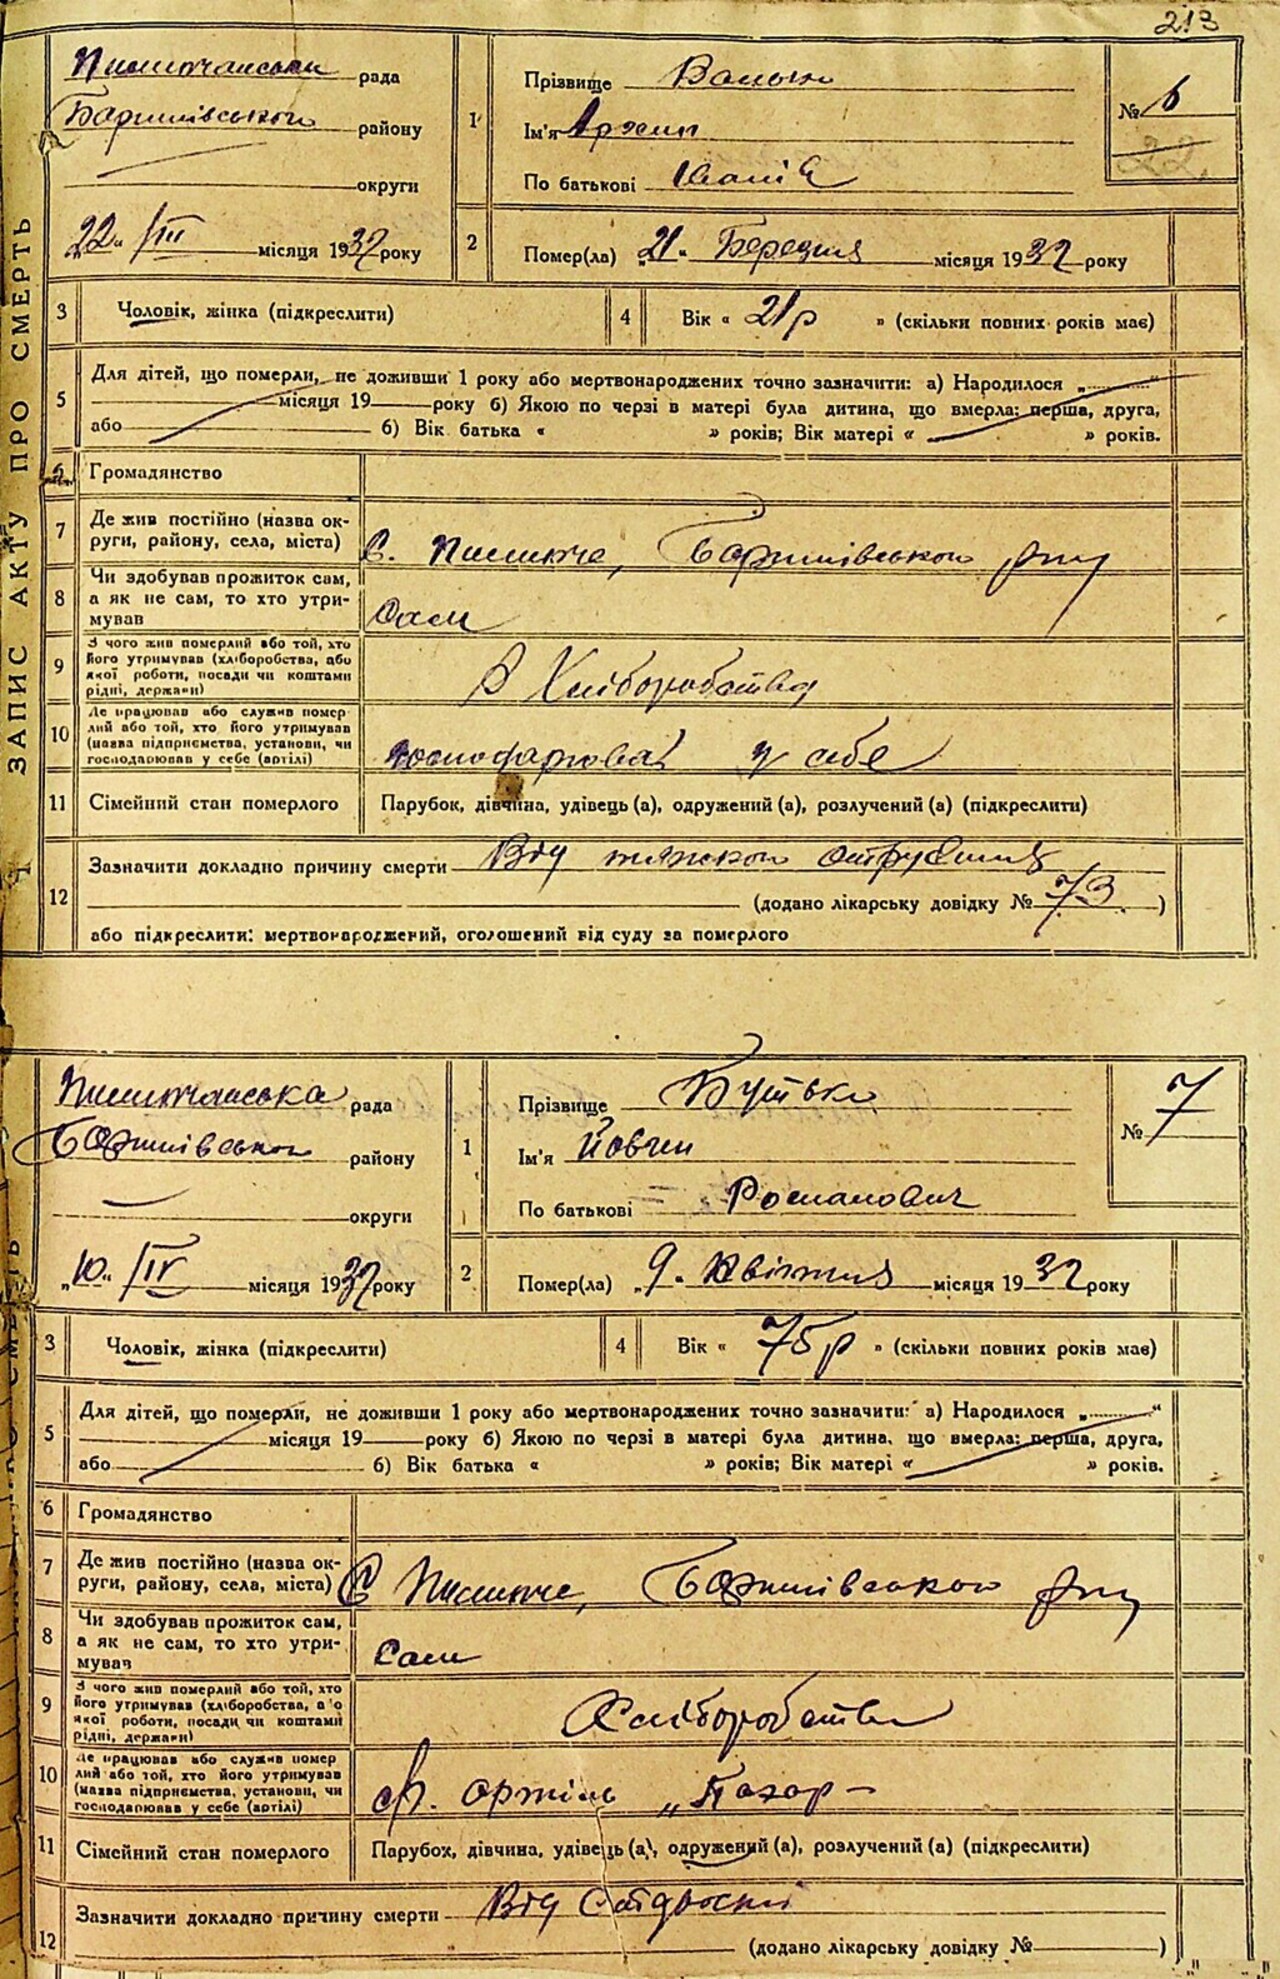 213
ЗАПИС АКТУ ПРО СМЕРТЬ
рада
Баришівського району
округи
„22“ /III місяця 1932 року
1
Прізвище
Ім'я Архип
По батькові Іванів
№ 6
22
2
Помер(ла) „21“ Березня місяця 1932 року
3
Чоловік, жінка (підкреслити)
4
Вік « 21 р » (скільки повних років має)
5
Для дітей, що померли, не доживши 1 року або мертвонароджених точно зазначити: а) Народилося „ “
місяця 19 року б) Якою по черзі в матері була дитина, що вмерла: перша, друга,
або б) Вік батька « » років; Вік матері « » років.
6
Громадянство
7
Де жив постійно (назва ок-
руги, району, села, міста)
с. Баришівського р-ну
8
Чи здобував прожиток сам,
а як не сам, то хто утри-
мував
Сам
9
З чого жив померлий або той, хто
його утримував (хліборобства, або
якої роботи, посади чи коштами
рідні, держави)
З Хліборобства
10
Де працював або служив помер
лий або той, хто його утримував
(назва підприємства, установи, чи
господарював у себе (артілі)
господарював у себе
11
Сімейний стан померлого
Парубок, дівчина, удівець (а), одружений (а), розлучений (а) (підкреслити)
12
Зазначити докладно причину смерти Від тяжкого отруєння
(додано лікарську довідку № 73 )
або підкреслити: мертвонароджений, оголошений від суду за померлого
рада
Баришівського району
округи
„10“ /IV місяця 1932 року
1
Прізвище Бутько
Ім'я Йовхим
По батькові Романович
№ 7
2
Помер(ла) „9“ Квітня місяця 1932 року
3
Чоловік, жінка (підкреслити)
4
Вік « 75 р » (скільки повних років має)
5
Для дітей, що померли, не доживши 1 року або мертвонароджених точно зазначити: а) Народилося „ “
місяця 19 року б) Якою по черзі в матері була дитина, що вмерла: перша, друга,
або б) Вік батька « » років; Вік матері « » років.
6
Громадянство
7
Де жив постійно (назва ок-
руги, району, села, міста)
с Баришівського р-ну
8
Чи здобував прожиток сам,
а як не сам, то хто утри-
мував
Сам
9
З чого жив померлий або той, хто
його утримував (хліборобства, або
якої роботи, посади чи коштами
рідні, держави)
Хліборобства
10
Де працював або служив помер
лий або той, хто його утримував
(назва підприємства, установи, чи
господарював у себе (артілі)
артіль
11
Сімейний стан померлого
Парубок, дівчина, удівець (а), одружений (а), розлучений (а) (підкреслити)
12
Зазначити докладно причину смерти Від
(додано лікарську довідку № )